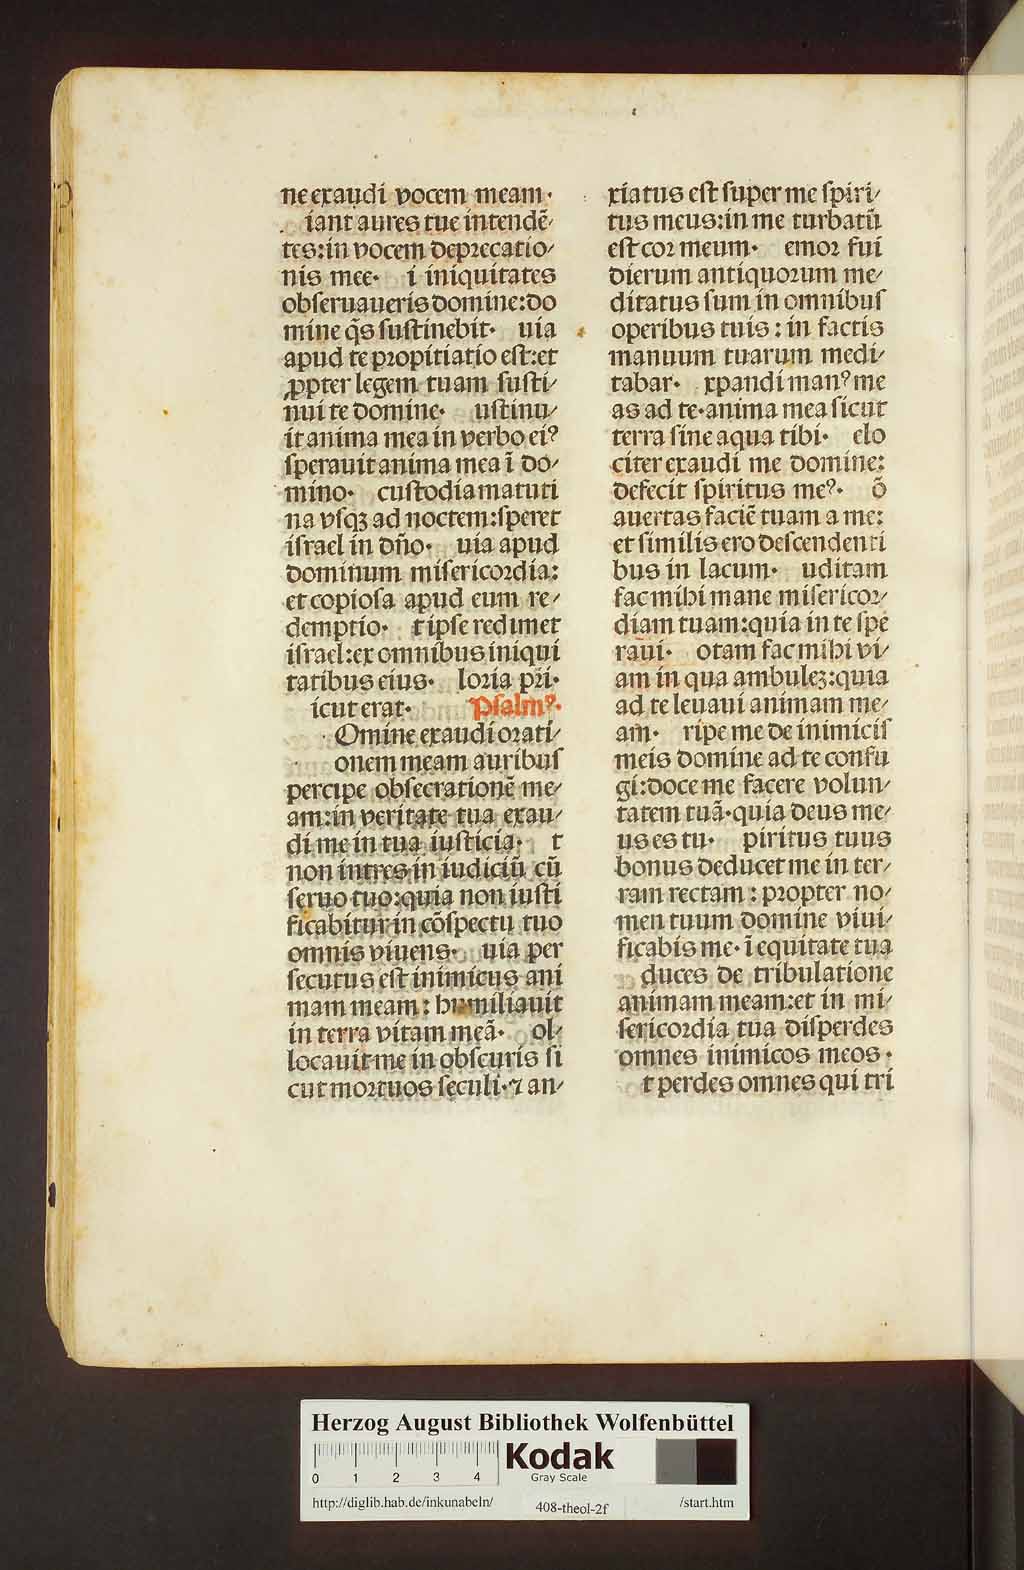 ne exaudi vocem meam·
iant aures tue intendẽ⸗
tes:in vocem deprecatio⸗
nis mee· i iniquitates
obſeruaueris domine:do
mine q̃s ſuſtinebit· uia
apud te propitiatio eſt:et
ꝓpter legem tuam ſuſti⸗
nui te domine· uſtinu⸗
it anima mea in verbo eiꝰ
ſperauit anima mea ĩ do⸗
mino· cuſtodia matuti
na vſqꝫ ad noctem:ſperet
iſrael in dño· uia apud
dominum miſericordia:
et copioſa apud eum re⸗
demptio· t ipſe redimet
iſrael:ex omnibus iniqui
tatibus eius· loria pr̃i·
icut erat· Pſalmꝰ·
Omine exaudi orati⸗
onem meam auribuſ
percipe obſecrationẽ me⸗
am:in veritate tua exau⸗
di me in tua iuſticia· t
non intres in iudiciũ cũ
ſeruo tuo:quia non iuſti
ficabitur in cõſpectu tuo
omnis viuens· uia per
ſecutus eſt inimicus ani
mam meam: humiliauit
in terra vitam meã· ol⸗
locauit me in obſcuris ſi
cut mortuos ſeculi·⁊ an⸗
xiatus eſt ſuper me ſpiri⸗
tus meus:in me turbatũ
eſt cor meum· emor fui
dierum antiquorum me⸗
ditatus ſum in omnibuſ
operibus tuis: in factis
manuum tuarum medi⸗
tabar· xpandi manꝰ me
as ad te·anima mea ſicut
terra ſine aqua tibi· elo
citer exaudi me domine:
defecit ſpiritus meꝰ· õ
auertas faciẽ tuam a me:
et ſimilis ero deſcendenti
bus in lacum· uditam
fac mihi mane miſericor⸗
diam tuam:quia in te ſpe
raui· otam fac mihi vi⸗
am in qua ambuleꝫ:quia
ad te leuaui animam me⸗
am· ripe me de inimiciſ
meis domine ad te confu
gi:doce me facere volun⸗
tatem tuã·quia deus me⸗
us es tu· piritus tuus
bonus deducet me in ter⸗
ram rectam: propter no⸗
men tuum domine viui⸗
ficabis me·ĩ equitate tua
duces de tribulatione
animam meam:et in mi⸗
ſericordia tua diſperdes
omnes inimicos meos·
t perdes omnes qui tri
Herzog August Bibliothek Wolfenbüttel
0 1 2 3 4
Kodak
Gray Scale
http://diglib.hab.de/inkunabeln/ 408-theol-2f /start.htm